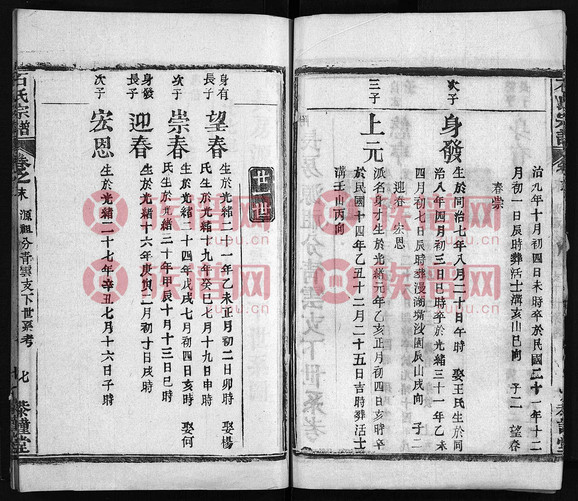 治九年十月初四日未時卒於民國二十一年十二
月初一日辰時葬活士灣亥山巳向 子二 望春
崇春
次子 身發 生於同治七年八月二十日午時 娶王氏生於同
治八年四月初三日巳時卒於光緒三十一年乙未
四月初七日辰時葬漫湖塆沙園辰山戌向 子二
迎春 宏恩
三子 上元 派名身才生於光緒元年乙亥正月初四日亥時卒
於民國十四年乙丑十二月二十五日吉時葬活士
溝壬山丙向
廿世
身有長子 望春 生於光緒二十一年乙未正月初二日卯時 娶楊
氏生於光緒十九年癸巳七月十九日申時
次子 崇春 生於光緒二十四年戊戌七月初四日亥時 娶何
氏生於光緒三十年甲辰十月十三日巳時
身發長子 迎春 生於光緒十六年庚寅二月初十日戌時
次子 宏恩 生於光緒二十七年辛丑七月十六日子時
石氏宗譜 卷之末 源祖分青雲支下世系考
族譜网